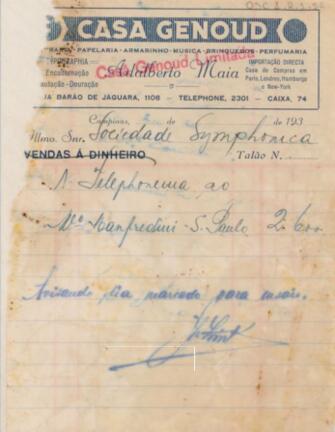 CASA GENOUD
PAPELARIA - ARMARINHO - MUSICA - BRINQUEDOS - PERFUMARIA
TYPOGRAPHIA
Encadernação
Pautação - Douração
Casa Genoud Limitada
Adalberto Maia
IMPORTAÇÃO DIRECTA
Casa de Compras em
Paris, Londres, Hamburgo
e New-York
RUA BARÃO DE JAGUARA, 1108 — TELEPHONE, 2301 — CAIXA, 74
Campinas, de de 193
Illmo. Snr. Sociedade Symphonica
VENDAS Á DINHEIRO Talão N.
1 Telephonema ao
Mº Manfredini - S. Paulo 2
Avisando dia marcado para ensaio.